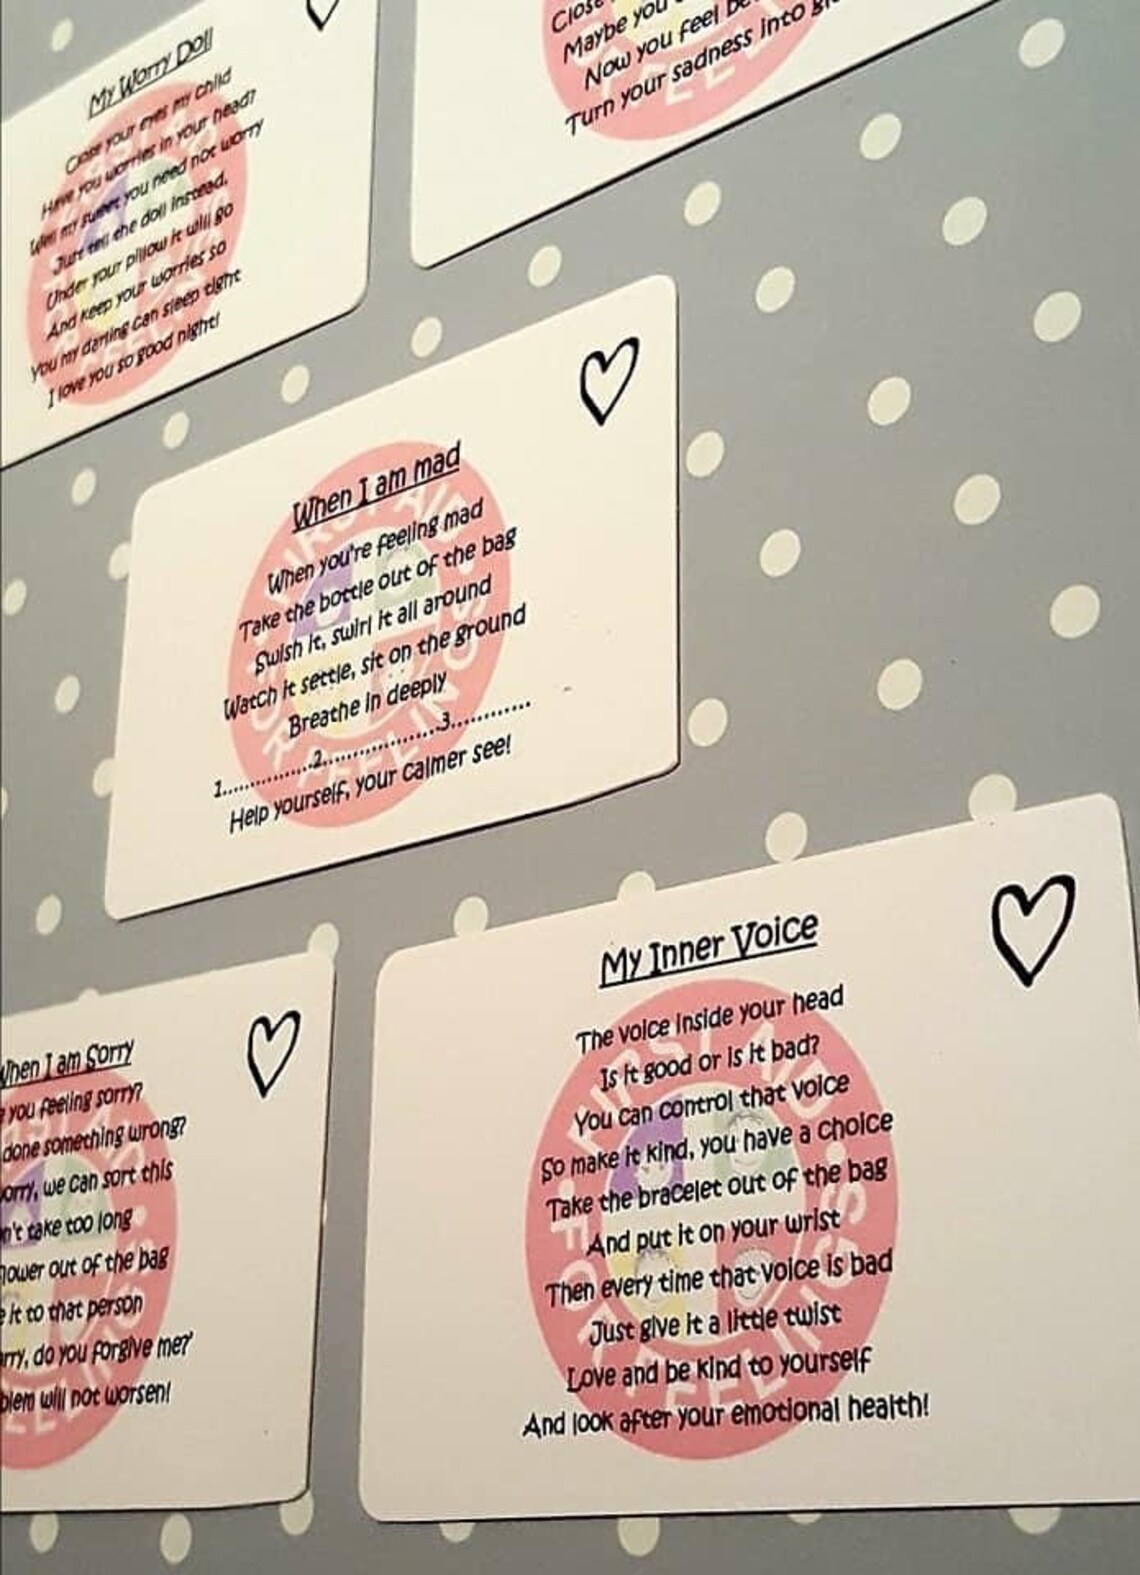 My Worry Doll
Close your eyes my child
Have you worries in your head?
Well my sweet you need not worry
Just tell the doll instead,
Under your pillow it will go
And keep your worries so
You my darling can sleep tight
I love you so good night!
Close
Maybe you
Now you feel
Turn your sadness into
When I am mad
When you're feeling mad
Take the bottle out of the bag
Swish it, swirl it all around
Watch it settle, sit on the ground
Breathe in deeply
1...............2..................3............
Help yourself, your calmer see!
When I am Sorry
you feeling sorry?
done something wrong?
we can sort this
take too long
out of the bag
it to that person
do you forgive me?'
will not worsen!
My Inner Voice
The voice inside your head
Is it good or is it bad?
You can control that voice
So make it kind, you have a choice
Take the bracelet out of the bag
And put it on your wrist
Then every time that voice is bad
Just give it a little twist
Love and be kind to yourself
And look after your emotional health!
FIRST AID
FOR FEELINGS